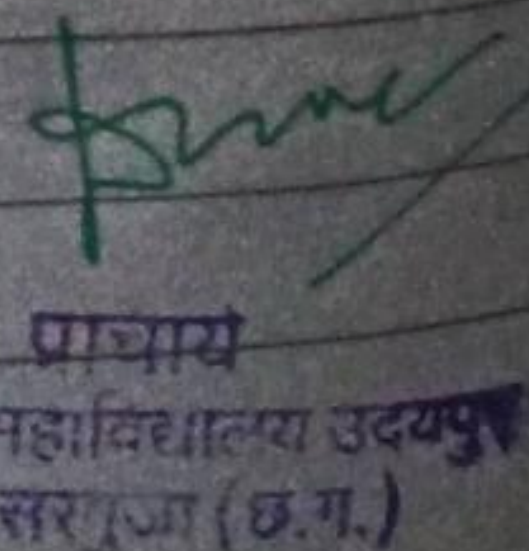 प्राचार्य
महाविद्यालय उदयपुर
सरगुजा (छ.ग.)